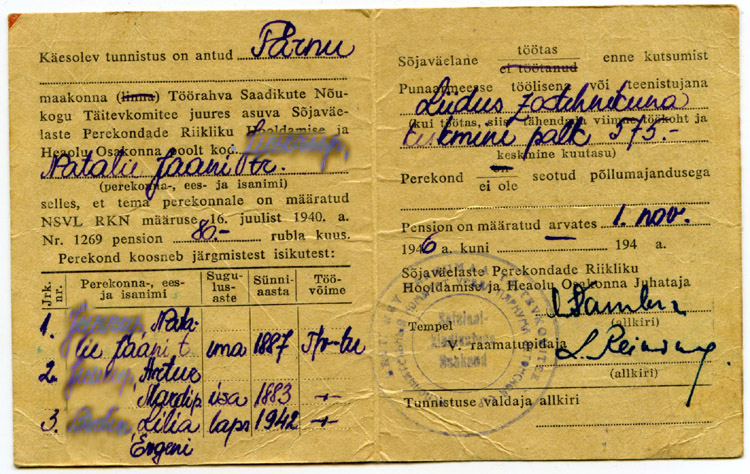 Käesolev tunnistus on antud Pärnu
maakonna (linna) Töörahva Saadikute Nõu-
kogu Täitevkomitee juures asuva Sõjaväe-
laste Perekondade Riikliku Hooldamise ja
Heaolu Osakonna poolt kod.
Natalie Jaani tr.
(perekonna-, ees- ja isanimi)
selles, et tema perekonnale on määratud
NSVL RKN määruse 16. juulist 1940. a.
Nr. 1269 pension 80.- rubla kuus.
Perekond koosneb järgmistest isikutest:
Jrk. nr. Perekonna-, ees- ja isanimi Sugu-lus-aste Sünni-aasta Töö-võime
1. Nata-
lie Jaani t. ema 1887
2. Artur
Mardi p. isa 1883 -"-
3. Lilia laps 1942 -"-
Evgeni
Sõjaväelane töötas ei töötanud enne kutsumist
Punaarmeesse töölisena või teenistujana
(kui töötas, siis tähendada viimne töökoht ja
keskmine palk 575.-
keskmine kuutasu)
Perekond on ei ole seotud põllumajandusega
Pension on määratud arvates 1. nov.
1946 a. kuni 194 a.
Sõjaväelaste Perekondade Riikliku
Hooldamise ja Heaolu Osakonna Juhataja
Tempel (allkiri)
V. raamatupidaja
(allkiri)
Tunnistuse valdaja allkiri
Sotsiaal-
kindlustuse
Osakond